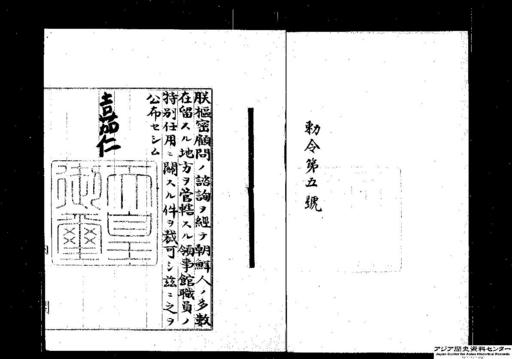 勅令第五號
朕樞密顧問ノ諮詢ヲ經テ朝鮮人ノ多數
在留スル地方ヲ管轄スル領事館職員ノ
特別任用ニ關スル件ヲ裁可シ茲ニ之ヲ
公布セシム
嘉仁
天皇
御璽
アジア歴史資料センター
Japan Center for Asian Historical Records